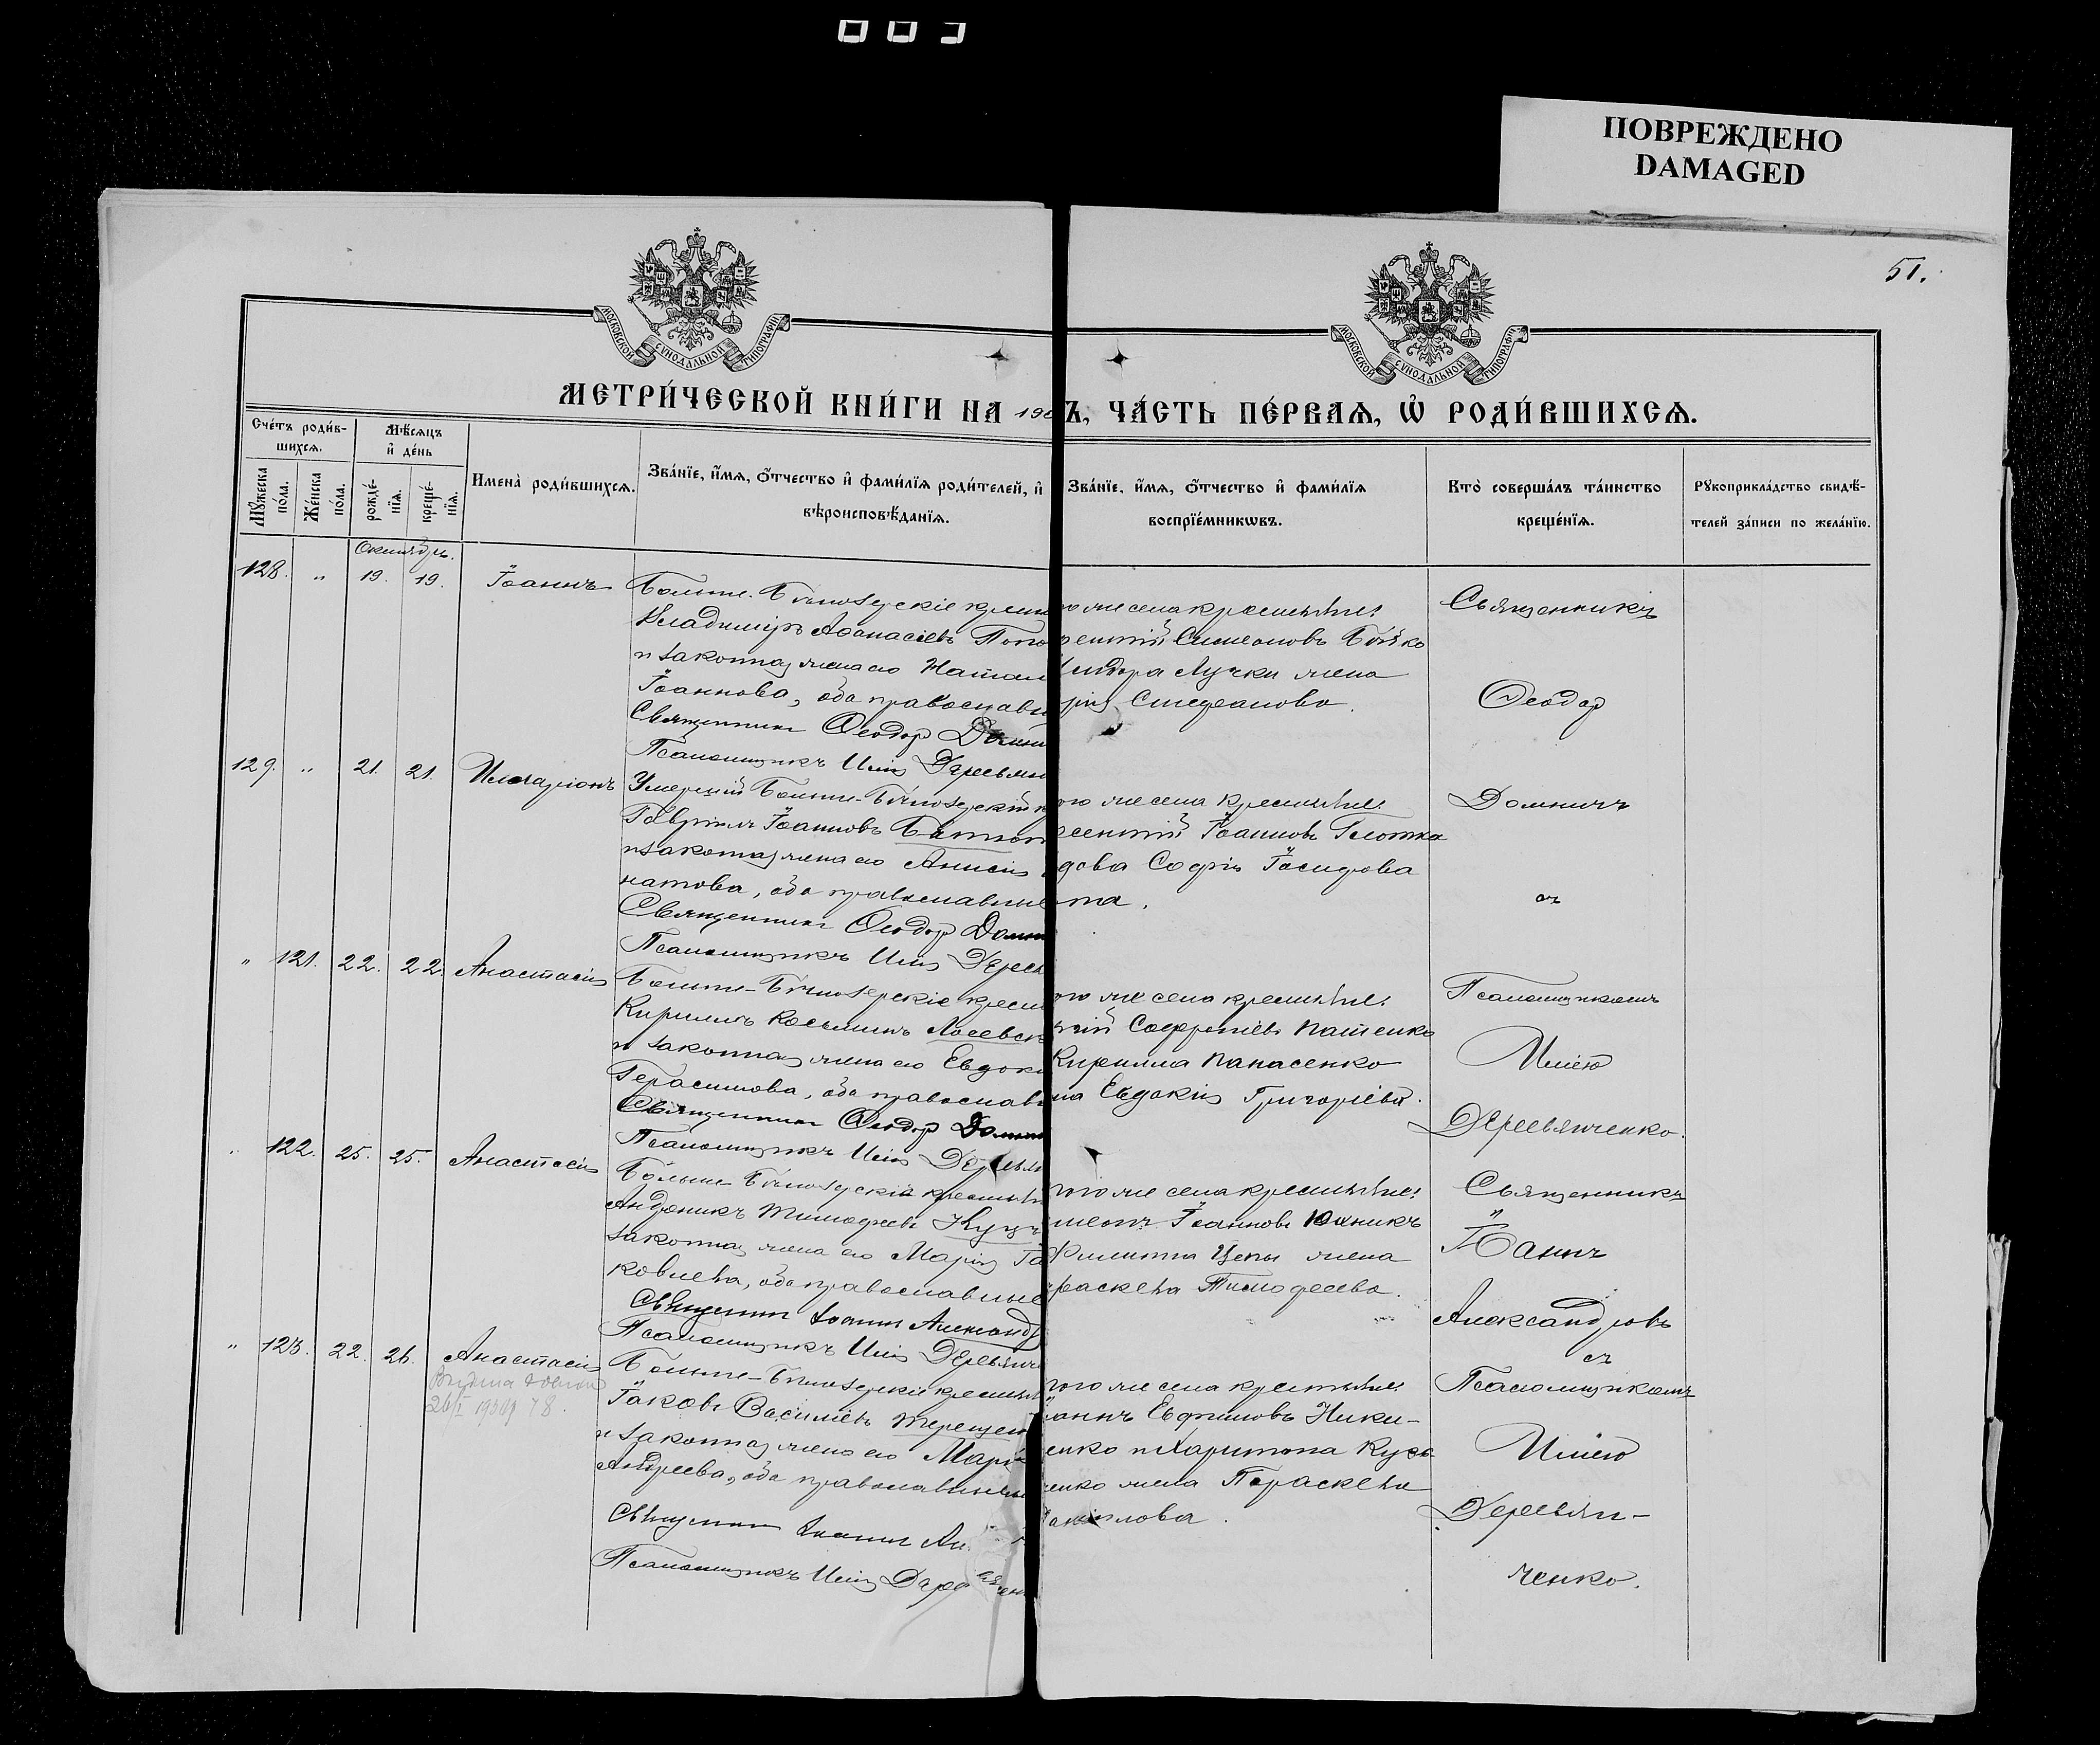 ПОВРЕЖДЕНО
DAMAGED
51.
МОСКОВСКОЙ СѴНОДАЛЬНОЙ ТИПОГРАФІИ
МОСКОВСКОЙ СѴНОДАЛЬНОЙ ТИПОГРАФІИ
МЕТРИ́ЧЕСКОЙ КНИ́ГИ НА 190
Ъ, ЧА́СТЬ ПЕ́РВАѦ, Ѽ РОДИ́ВШИХСѦ.
Сче́тъ роди́в-
шихсѧ.
Мѣ́сѧцъ
и҆ де́нь
Мꙋ́жеска по́ла.
Же́нска по́ла.
рожде́-
нїѧ.
креще́-
нїѧ.
И҆мена̀ роди́вшихсѧ.
Зва́нїе, и҆́мѧ, ѻ҆́тчество и҆ фами́лїѧ роди́телей, и҆
вѣроисповѣ́данїѧ.
Зва́нїе, и҆́мѧ, ѻ҆́тчество и҆ фами́лїѧ
воспрїе́мникѡвъ.
Кто̀ соверша́лъ та́инство
креще́нїѧ.
Рꙋкоприкла́дство свидѣ́-
телей за́писи по жела́нїю.
Октябрь.
128. " 19. 19. Іоаннъ
Больше-Бѣлозерскіе крест
Владиміръ Аѳанасіевъ Попо
и законная жена его Натал
Іоаннова, оба православн
Священникъ Ѳеодоръ Домни
Псаломщикъ Илія Деревян
го же села крестьяне:
рентій Симеоновъ Бойко
идора Лучки жена
рія Стефанова.
Священникъ
Ѳеодор
129. " 21. 21. Иларіонъ
Умершій Больше-Бѣлозерскій к
Гавріилъ Іоанновъ Батют
и законная жена его Анисія
натова, оба православные
Священникъ Ѳеодоръ Домн
Псаломщикъ Илія Дерев
ого же села крестьяне:
сентій Іоанновъ Глотка
дова Софія Іосифова
та.
Домничъ
съ
" 121. 22. 22. Анастасія
Больше-Бѣлозерскіе крест
Кириллъ Косьминъ Лосевск
и законная жена его Евдокі
Герасимова, оба православ
Священникъ Ѳеодоръ Домн
Псаломщикъ Илія Деревян
ого же села крестьяне:
гій Софроніевъ Пащенко
Кирилла Панасенко
на Евдокія Григоріева.
Псаломщикомъ
Иліею
Деревянченко.
" 122. 25. 25. Анастасія
Больше-Бѣлозерскіе крестьян
Андроникъ Тимофеевъ Куц
законная жена его Марія Іа
ковлева, оба православные
Священникъ Іоаннъ Александ
Псаломщикъ Илія Деревянч
того же села крестьяне:
меонъ Іоанновъ Юхникъ
Филиппа Цепы жена
раскева Тимофеева.
Священникъ
Іоаннъ
Александровъ
съ
" 123. 22. 26. Анастасія
Больше-Бѣлозерскіе крестьян
Іаковъ Василіевъ Терещен
и законная жена его Марі
Андреева, оба православные
Священникъ Іоаннъ Ал
Псаломщикъ Илія Дере
того же села крестьяне:
оаннъ Евфимовъ Ники-
енко и Харитона Кузь
менко жена Параскева
лова.
Псаломщикомъ
Иліею
Деревян-
ченко.